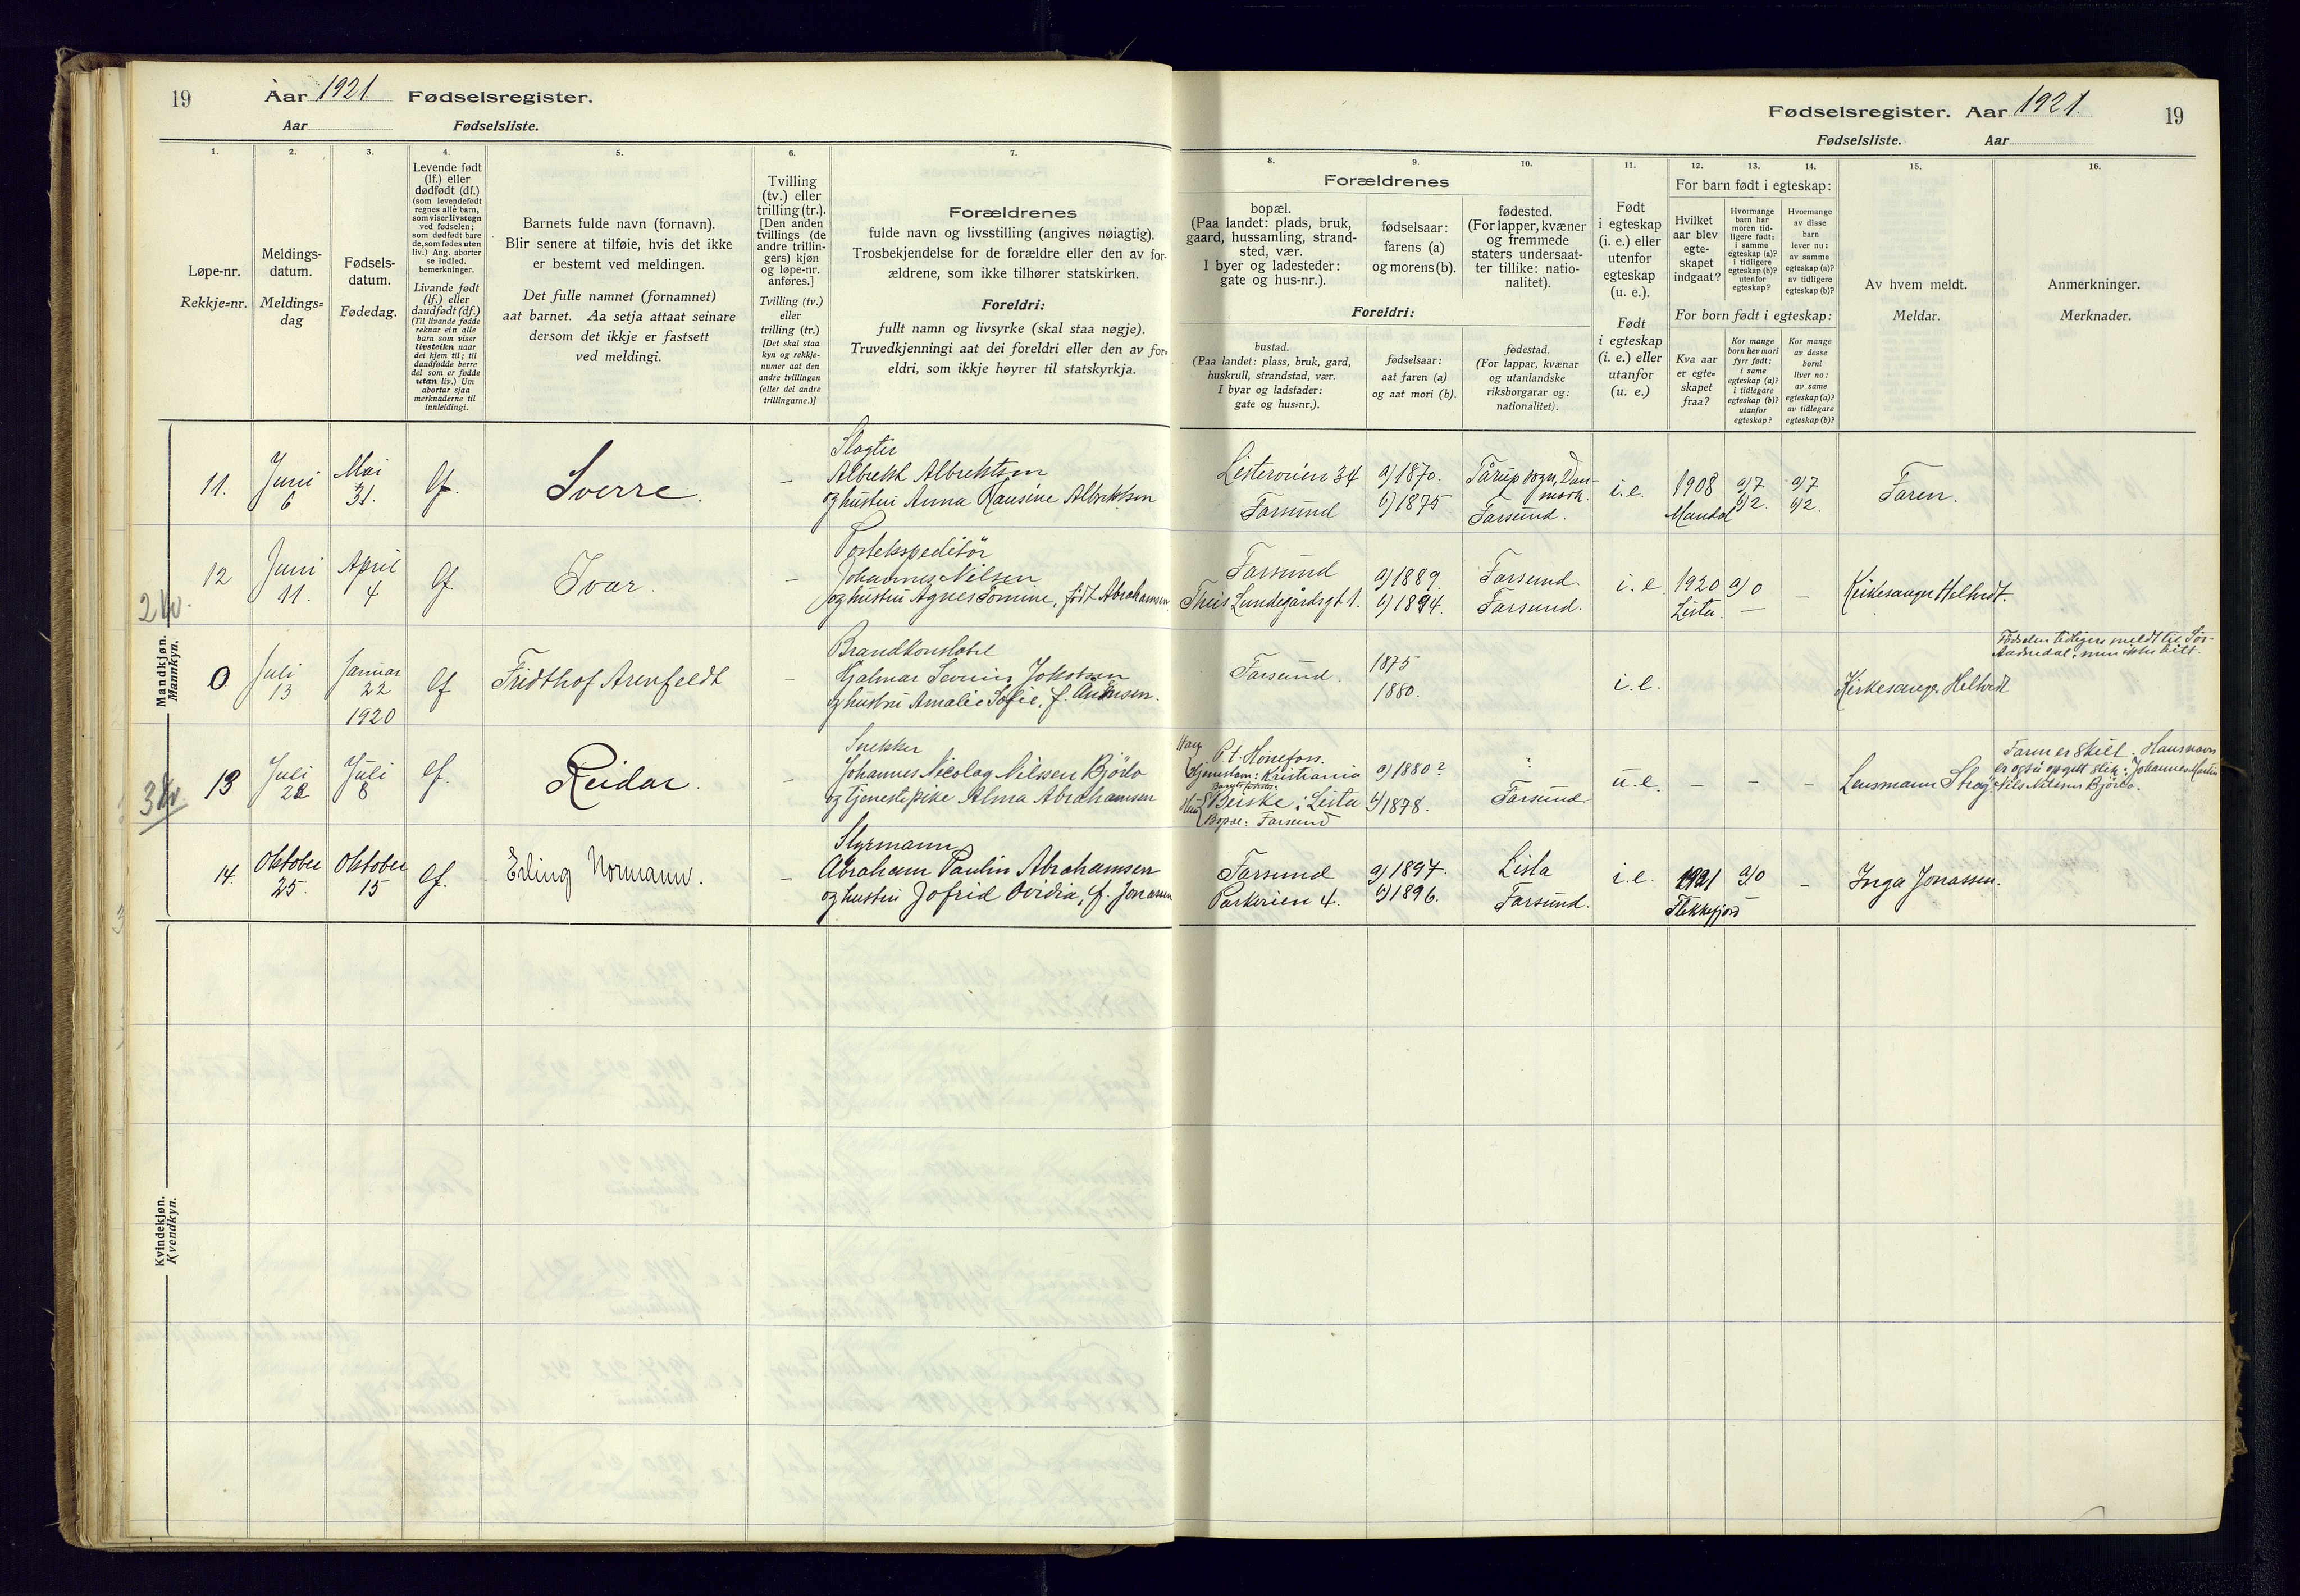 19
Aar 1921. Fødselsregister.
Aar Fødselsliste.
1.
2.
3.
4.
5.
6.
7.
Løpe-nr.
Rekkje=nr.
Meldings-
datum.
Meldings=
dag
Fødsels-
datum.
Fødedag.
Levende født
(lf.) eller
dødfødt (df.)
(som levendefødt
regnes alle barn,
som viser livstegn
ved fødselen;
som dødfødt bare
de, som fødes uten
liv.) Ang. aborter
se indled.
bemerkninger.
Livande født
(lf.) eller
daudfødt (df.)
(Til livande fødde
reknar ein alle
barn som viser
livsteikn naar
dei kjem til; til
daudfødde berre
dei som er fødde
utan liv.) Um
abortar sjaa
merknaderne til
innleidingi.
Barnets fulde navn (fornavn).
Blir senere at tilføie, hvis det ikke
er bestemt ved meldingen.
Det fulle namnet (fornamnet)
aat barnet. Aa setja attaat seinare
dersom det ikkje er fastsett
ved meldingi.
Tvilling
(tv.) eller
trilling (tr.).
[Den anden
tvillings (de
andre trillin-
gers) kjøn
og løpe-nr.
anføres.]
Tvilling (tv.)
eller
trilling (tr.)
[Det skal staa
kyn og rekkje-
numer aat den
andre tvillingen
(eller dei andre
trillingarne.)]
Forældrenes
fulde navn og livsstilling (angives nøiagtig).
Trosbekjendelse for de forældre eller den av for-
ældrene, som ikke tilhører statskirken.
Foreldri:
fullt namn og livsyrke (skal staa nøgje).
Truvedkjenningi aat dei foreldri eller den av for=
eldri, som ikkje høyrer til statskyrkja.
Mandkjøn.
Mannkyn.
11. Juni 6 Mai 31. lf. Sverre. –
Slagter
Albrekt Albrektsen
og hustru Anna Hansine Albrektsen
12 Juni 11. April 4 lf Ivar. –
Postekspeditør
Johannes Nilsen
og hustru Agnes Tomine, født Abrahamsen
0 Juli 13 Januar 22 1920 lf Fridthof Arenfeldt –
Brandkonstabel
Hjalmar Severin Jakobsen
og hustru Amalie Sofie, f.
13 Juli 22 Juli 8 lf. Reidar. –
Snekker
Johannes Nicolay Nilssen Björlo
og tjenestepike Alma Abrahamsen
14. Oktober 25. Oktober 15 lf. Erling Normann. –
Styrmann
Abraham Paulin Abrahamsen
og hustru Jofrid Ovidia, f. Jonassen
Kvindekjøn.
Kvendkyn.
Fødselsregister. Aar 1921. 19
Fødselsliste. Aar
8.
9.
10.
11.
12.
13.
14.
15.
16.
Forældrenes
bopæl.
(Paa landet: plads, bruk,
gaard, hussamling, strand-
sted, vær.
I byer og ladesteder:
gate og hus-nr.).
fødselsaar:
farens (a)
og morens (b).
fødested.
(For lapper, kvæner
og fremmede
staters undersaat-
ter tillike: natio-
nalitet).
Foreldri:
bustad.
(Paa landet: plass, bruk, gard,
huskrull, strandstad, vær.
I byar og ladstader:
gate og hus=nr.).
fødselsaar:
aat faren (a)
og aat mori (b).
fødestad.
(For lappar, kvænar
og utanlandske
riksborgarar og:
nationalitet).
Født
i egteskap
(i. e.) eller
utenfor
egteskap
(u. e.).
Født
i egteskap
(i. e.) eller
utanfor
(u. e.)
For barn født i egteskap:
Hvilket
aar blev
egte-
skapet
indgaat?
Hvormange
barn har
moren tid-
ligere født:
i samme
egteskap (a)?
i tidligere
egteskap (b)?
utenfor
egteskap?
Hvormange
av disse
barn
lever nu:
av samme
egteskap (a)?
av tidligere
egteskap (b)?
For born født i egteskap:
Kva aar
er egte=
skapet
fraa?
Kor mange
born hev mori
fyrr født:
i same
egteskap (a)?
i tidlegare
egteskap (b)?
utanfor
egteskap?
Kor mange
av desse
borni
liver no:
av same
egteskap (a)?
av tidlegare
egteskap (b)?
Av hvem meldt.
Meldar.
Anmerkninger.
Merknader.
Listerveien 34 a) 1870. Tårup sogn, Dan-
mark. i.e. 1908 a) 7 a) 7 Faren.
Farsund b) 1875 Farsund. Mandal b) 2. b) 2.
Farsund a) 1889. Farsund. i.e. 1920 a) 0 – Kirkesanger Helvedt.
Thiis Lundegårdsgt 1. b) 1894. Farsund. Lista. –
Farsund. 1875 i.e. Kirkesanger Helvedt
1880.
Fødselen tidligere meldt til Sør-
Audnedal, men ikke hitt.
P.t. Hönefoss.
Hjemstavn: Kristiania a) 1880? ? u.e. – – –
Barnets fødested:
Beiske i Lista b) 1878. Farsund.
Bopæl: Farsund
Lensmann
Faren er skilt. Hans navn
er også opgitt slik: Johannes Martin
Nils Nilssen Björlo.
Farsund a) 1897. Lista i.e. 1921 a) 0 – Inga Jonassen.
Parkveien 4. b) 1896. Farsund. Flekkefjord